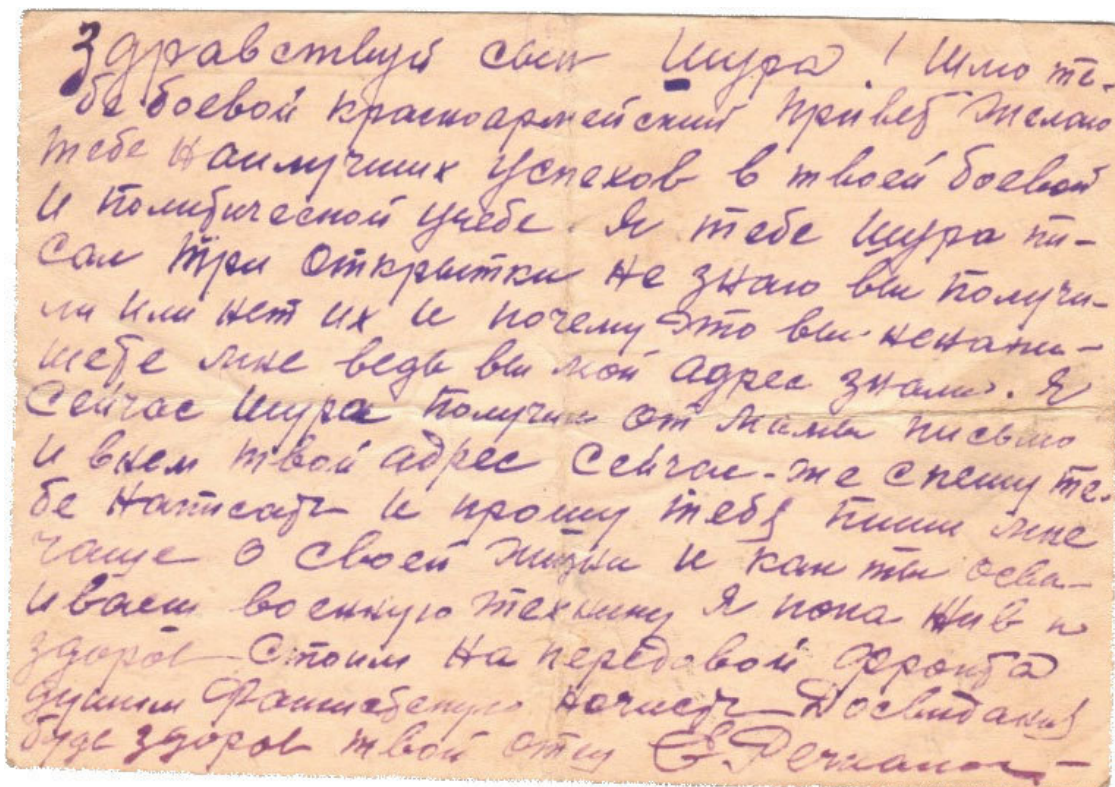 Здравствуй сын Шура! Шлю те-
бе боевой красноармейский привет желаю
тебе наилучших успехов в твоей боевой
и политической учебе. Я тебе Шура пи-
сал три открытки не знаю вы получи-
ли или нет их и почему это вы ненапи-
шете мне ведь вы мой адрес знали. Я
сейчас Шура получил от мамы письмо
и внем твой адрес сейчас-же спешу те-
бе написать и прошу тебя пиши мне
чаще о своей жизни и как ты осва-
иваеш военную технику Я пока жив и
здоров стоим на передовой фронта
душим фашистскую нечисть Досвидания
будь здоров твой отец Е.